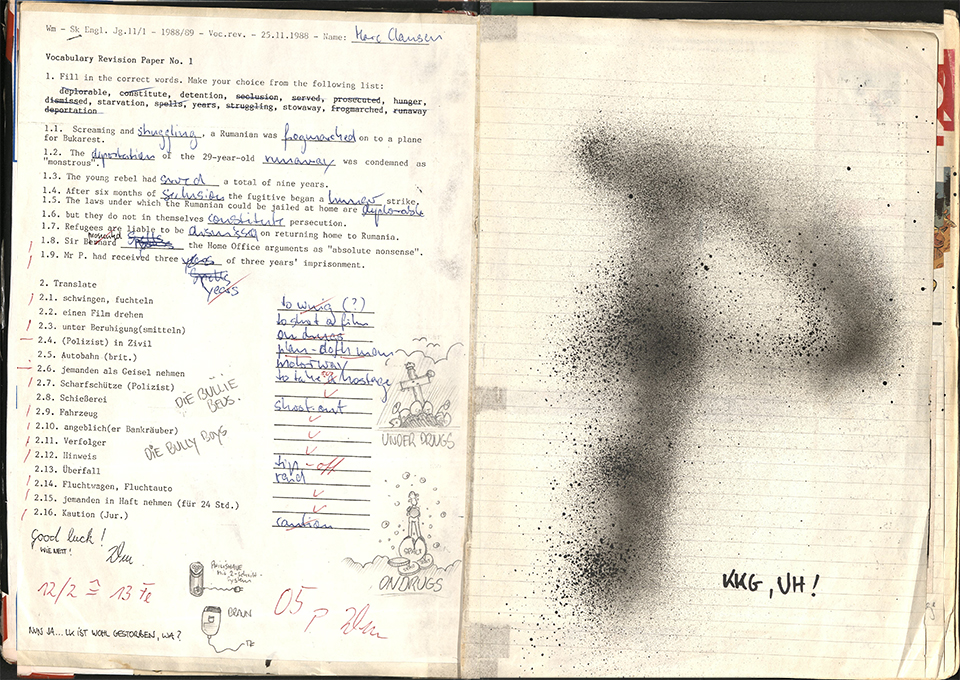 Wm - Sk Engl. Jg.11/1 - 1988/89 - Voc.rev. - 25.11.1988 - Name: Marc Clausen
Vocabulary Revision Paper No. 1
1. Fill in the correct words. Make your choice from the following list:
deplorable, constitute, detention, seclusion, served, prosecuted, hunger,
dismissed, starvation, spells, years, struggling, stowaway, frogmarched, runaway
deportation
1.1. Screaming and struggling, a Rumanian was frogmarched on to a plane
for Bukarest.
1.2. The deportation of the 29-year-old runaway was condemned as
"monstrous".
1.3. The young rebel had served a total of nine years.
1.4. After six months of seclusion the fugitive began a hunger strike.
1.5. The laws under which the Rumanian could be jailed at home are deplorable
1.6. but they do not in themselves constitute persecution.
1.7. Refugees are liable to be dismissed on returning home to Rumania.
1.8. Sir Bernard the Home Office arguments as "absolute nonsense".
1.9. Mr P. had received three years of three years' imprisonment.
spells
years
2. Translate
2.1. schwingen, fuchteln to wing (?)
2.2. einen Film drehen to shot a film
2.3. unter Beruhigung(smitteln) on drugs
2.4. (Polizist) in Zivil plan-doth man
2.5. Autobahn (brit.) motorway
2.6. jemanden als Geisel nehmen to take hostage
2.7. Scharfschütze (Polizist)
2.8. Schießerei shoot-out
2.9. Fahrzeug
2.10. angeblich(er Bankräuber)
2.11. Verfolger
2.12. Hinweis tip-off
2.13. Überfall raid
2.14. Fluchtwagen, Fluchtauto
2.15. jemanden in Haft nehmen (für 24 Std.)
2.16. Kaution (Jur.) caution
DIE BULLIE
BEUS.
DIE BULLY BOYS
UNDER DRUGS
SPACE
ON DRUGS
Good luck!
WIE NETT!
Wm
12/2 ≙ 13 Fe
BRAUN
05 P Wm
NUN JA... LK IST WOHL GESTORBEN, WA?
KKG, UH!